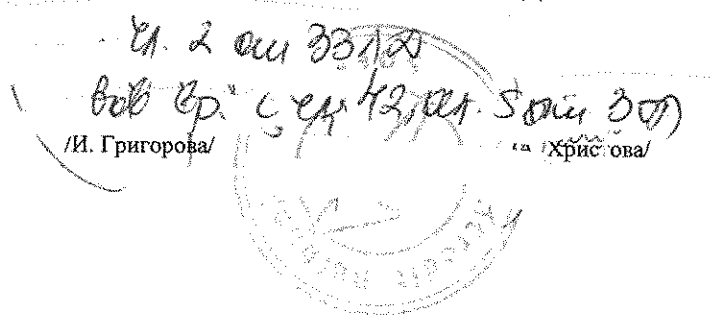 чл. 2 от ЗЗЛД
във вр. с чл. 42, ал. 5 от ЗОП
/И. Григорова/ Христова/